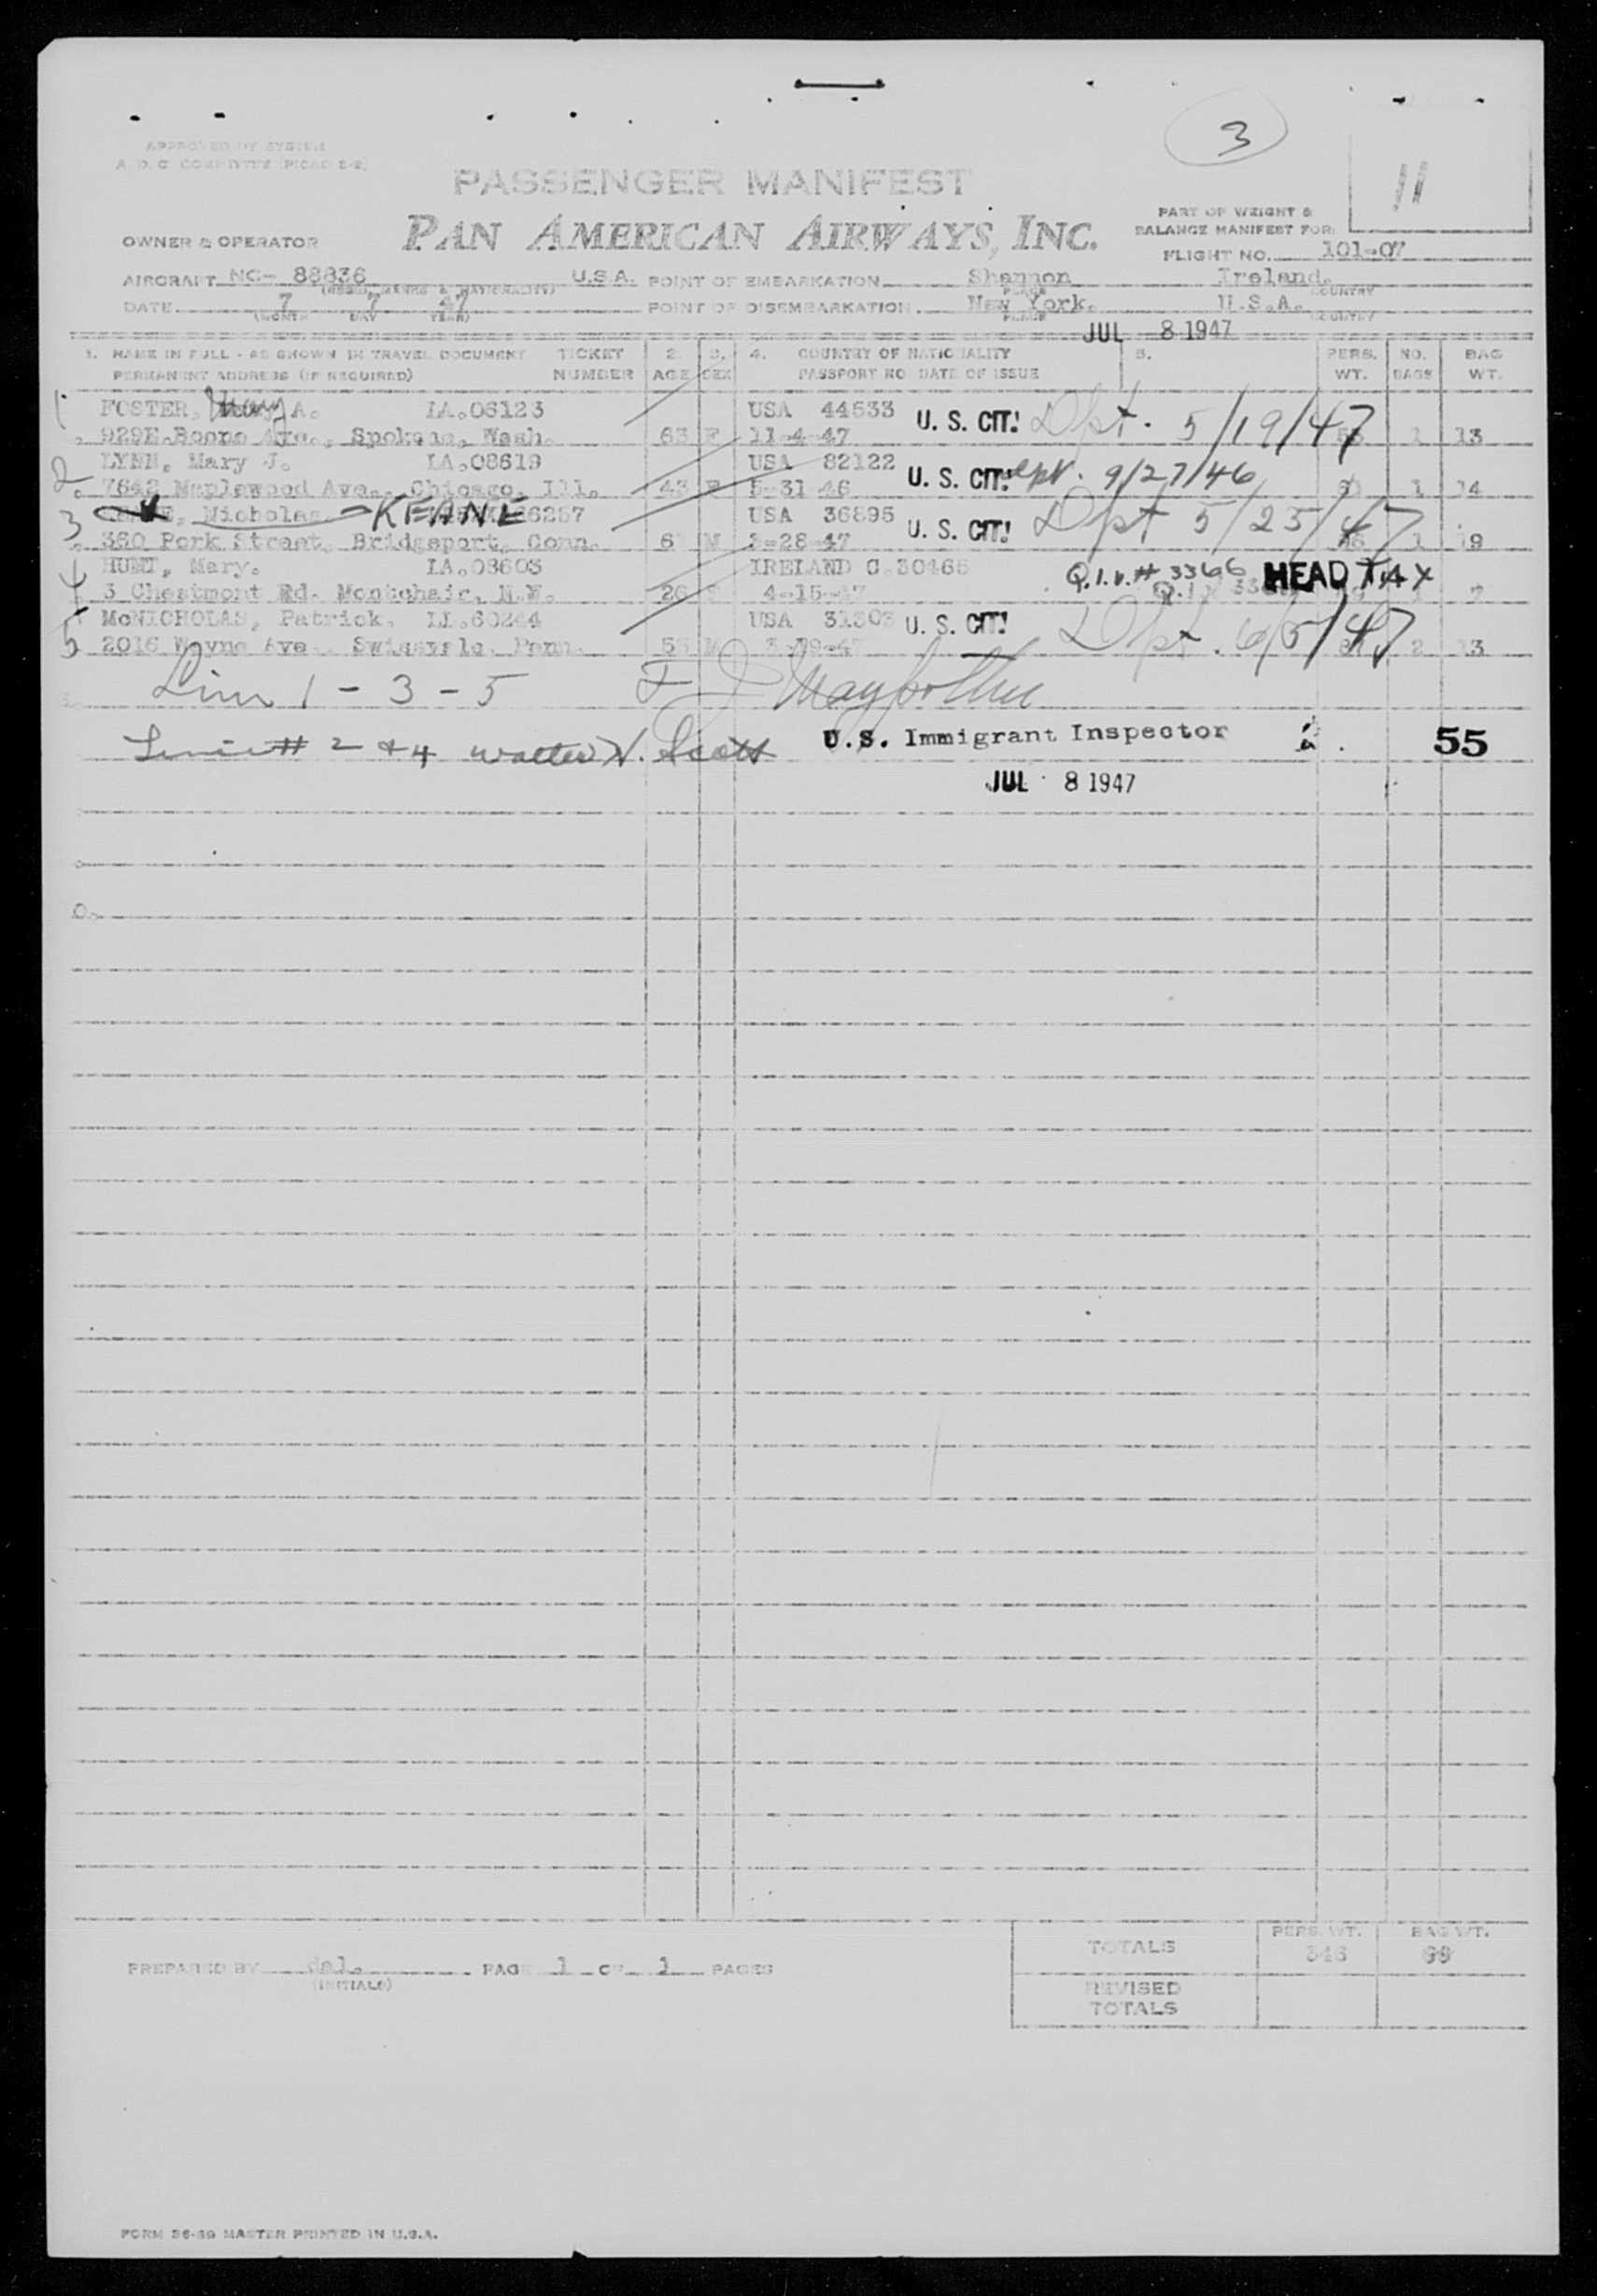 3
11
APPROVED BY SYSTEM
A.D.C COMMITTEE (PICAO 2-2)
PASSENGER MANIFEST
PART OF WEIGHT &
BALANCE MANIFEST FOR:
OWNER & OPERATOR PAN AMERICAN AIRWAYS, INC.
FLIGHT NO. 101-07
AIRCRAFT NC- 88836 U.S.A. POINT OF EMBARKATION Shannon Ireland.
PLACE COUNTRY
DATE 7 7 47 POINT OF DISEMBARKATION New York. U.S.A.
(MONTH DAY YEAR) PLACE COUNTRY
JUL 8 1947
1. NAME IN FULL - AS SHOWN IN TRAVEL DOCUMENT TICKET 2. 3. 4. COUNTRY OF NATIONALITY 5. PERS. NO. BAG
PERMANENT ADDRESS (IF REQUIRED) NUMBER AGE SEX PASSPORT NO DATE OF ISSUE WT. BAGS WT.
1 FOSTER, Mary A. IA.06123 USA 44533 U. S. CIT! Dpt. 5/19/47
929E.Boone Ave., Spokane, Wash. 63 F 11-4-47 1 13
2 LYNN, Mary J. IA.08619 USA 82122 U. S. CIT! Dpt. 9/27/46
7642 Maplewood Ave., Chicago, Ill. 43 F 5-31 46 1 14
3 Nicholas - KEANE 26257 USA 36895 U. S. CIT! Dpt 5/25/47
360 Park Street, Bridgeport, Conn. 6 M 3-28-47 1 19
4 HUNT, Mary. IA.08603 IRELAND C.30465 Q.I.V.# 3366 HEAD TAX
3 Chestmont Rd. Montchair, 26 4-15-47 1 7
5 McNICHOLAS, Patrick. 60244 USA U. S. CIT! Dpt. 6/5/47
2016 Wayne Ave. Swissvale, Penn. 55 M 2 13
Line 1 - 3 - 5
Line # 2 & 4 Walter N. Scott U.S. Immigrant Inspector 55
JUL 8 1947
PERS. WT. BAG WT.
TOTALS 346
PREPARED BY dal. PAGE 1 OF 1 PAGES
(INITIALS)
REVISED
TOTALS
FORM 36-39 MASTER PRINTED IN U.S.A.